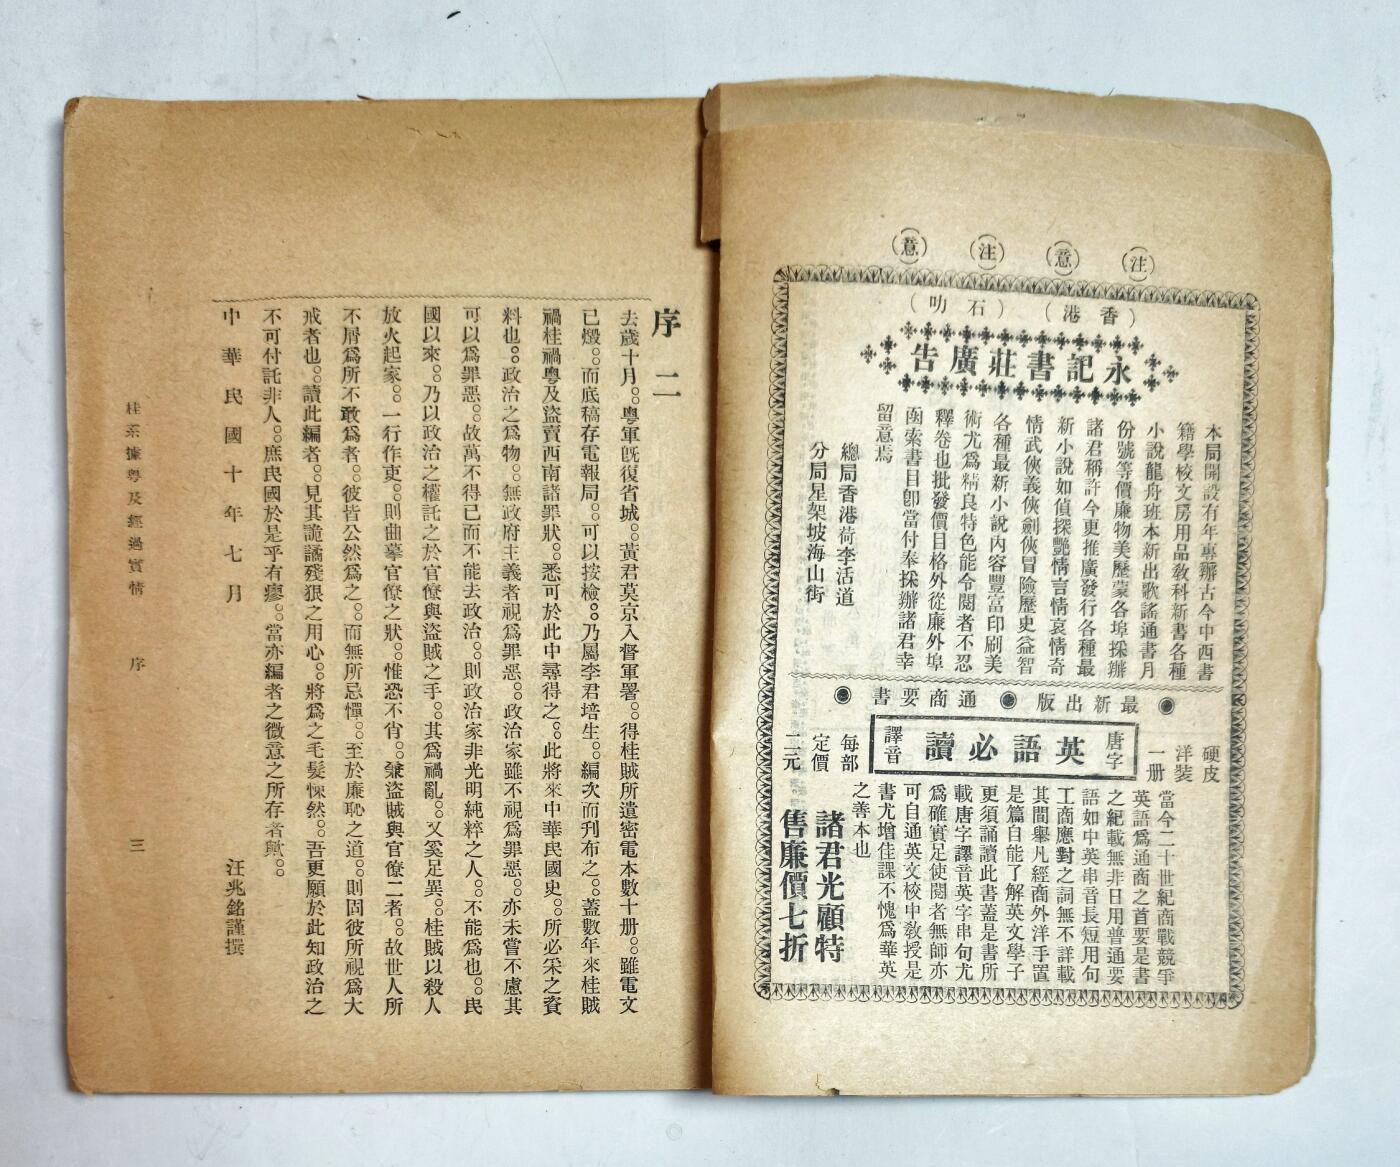 注意注意
香港 石叻
永記書莊廣告
本局開設有年專辦古今中西書
籍學校文房用品教科新書各種
小說龍舟班本新出歌謠通書月
份號等價廉物美歷蒙各埠採辦
諸君稱許今更推廣發行各種最
新小說如偵探艷情言情哀情奇
情武俠義俠劍俠冒險歷史益智
各種最新小說內容豐富印刷美
術尤爲精良特色能令閱者不忍
釋卷也批發價目格外從廉外埠
函索書目卽當付奉採辦諸君幸
留意焉
總局香港荷李活道
分局星架坡海山街
最新出版 通商要書
硬皮
洋裝
一册
唐字
英語必讀
譯音
每部
定價
二元
當今二十世紀商戰競爭
英語爲通商之首要是書
之紀載無非日用普通要
語如中英串音長短用句
工商應對之詞無不詳載
其間舉凡經商外洋手置
是篇自能了解英文學子
更須誦讀此書蓋是書所
載唐字譯音英字串句尤
爲確實足使閱者無師亦
可自通英文校中敎授是
書尤增佳課不愧爲華英
之善本也
諸君光顧特
售廉價七折
序二
去歲十月。。粵軍旣復省城。。黃君莫京入督軍署。。得桂賊所遺密電本數十册。。雖電文
已燬。。而底稿存電報局。。可以按檢。。乃屬李君培生。。編次而刋布之。。蓋數年來桂賊
禍桂禍粵及盜賣西南諸罪狀。。悉可於此中尋得之。。此將來中華民國史。。所必采之資
料也。。政治之爲物。。無政府主義者視爲罪惡。。政治家雖不視爲罪惡。。亦未嘗不慮其
可以爲罪惡。。故萬不得已而不能去政治。。則政治家非光明純粹之人。。不能爲也。。民
國以來。。乃以政治之權託之於官僚與盜賊之手。。其爲禍亂。。又奚足異。。桂賊以殺人
放火起家。。一行作吏。。則曲摹官僚之狀。。惟恐不肖。。兼盜賊與官僚二者。。故世人所
不屑爲所不敢爲者。。彼皆公然爲之。。而無所忌憚。。至於廉恥之道。。則固彼所視爲大
戒者也。。讀此編者。。見其詭譎殘狠之用心。。將爲之毛髮悚然。。吾更願於此知政治之
不可付託非人。。庶民國於是乎有瘳。。當亦編者之微意之所存者歟。。
中華民國十年七月 汪兆銘謹撰
桂系據粵及經過實情 序 三